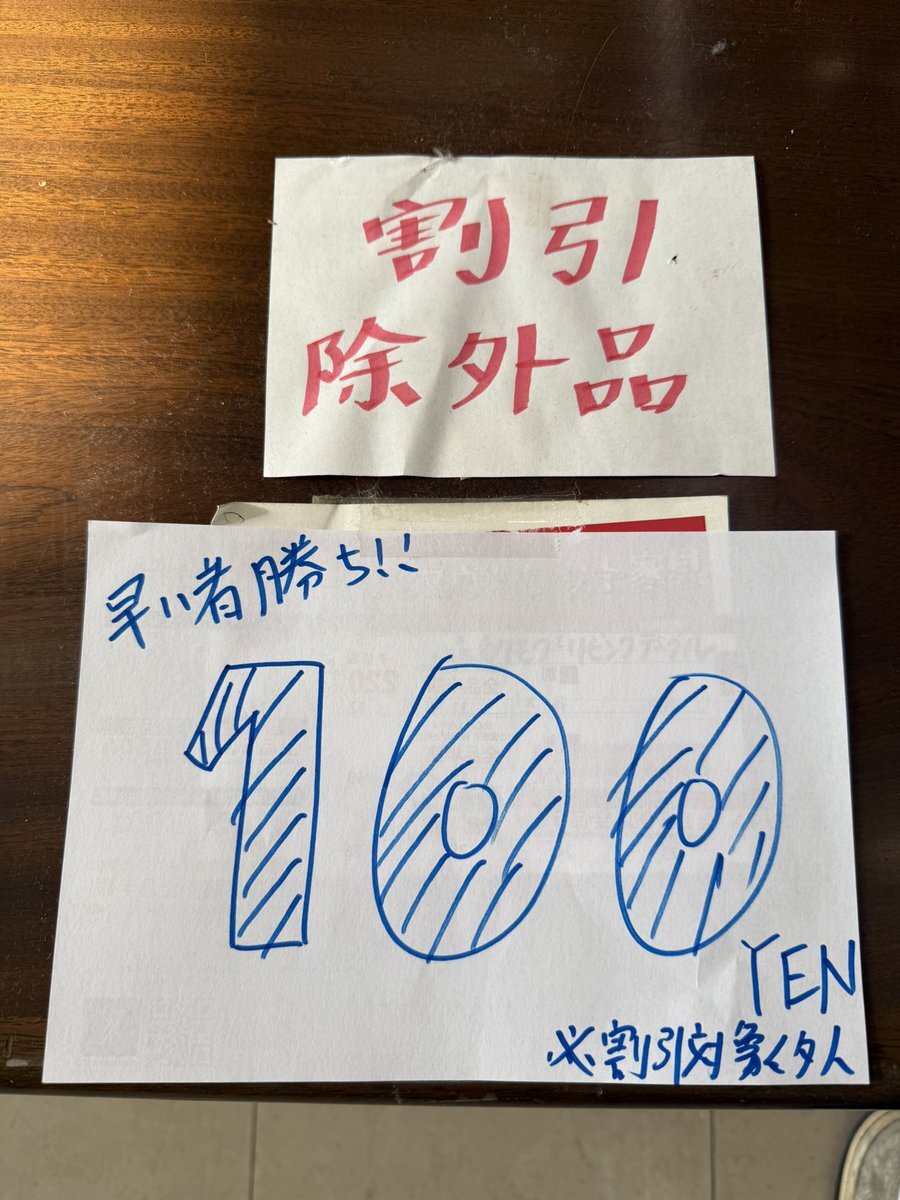 割引
除外品
早い者勝ち!!
100
YEN
※割引対象外